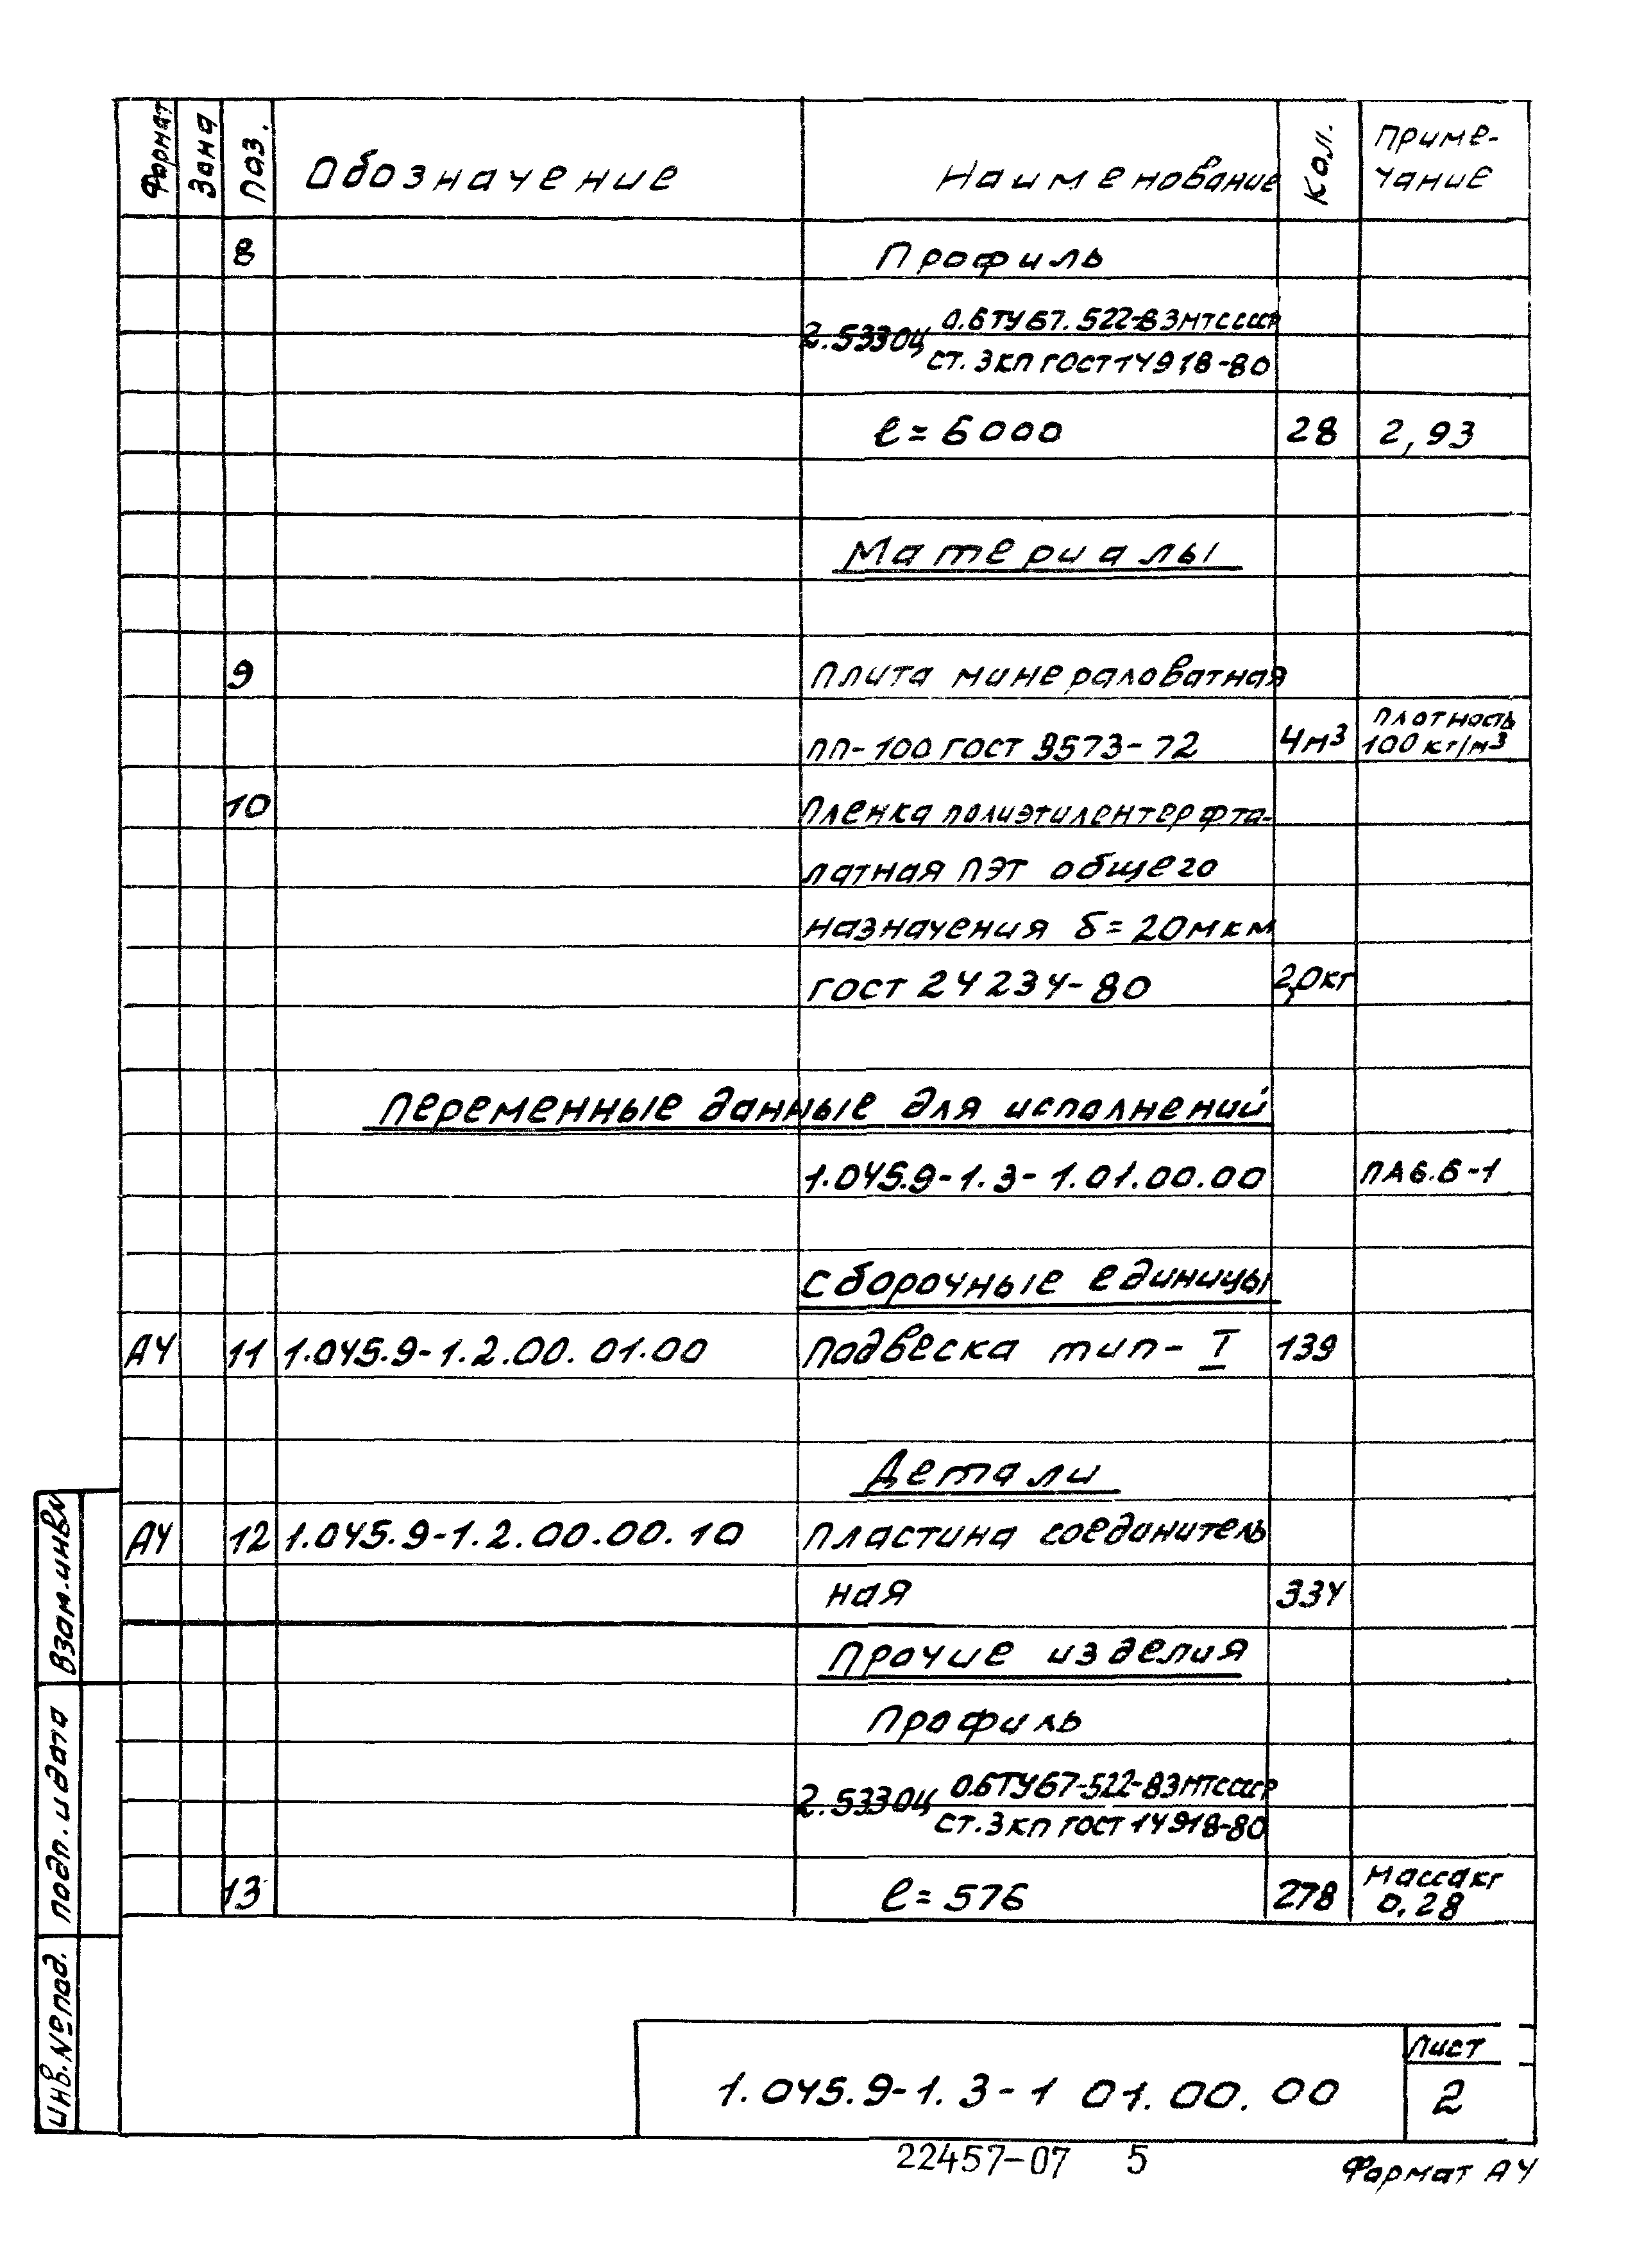 Формат Зона Поз. Обозначение Наименование Кол. Приме-
чание
8 Профиль
2.53304 0.6ТУ67.522-83МТСССР
ст. 3кп ГОСТ14918-80
ℓ = 6000 28 2,93
Материалы
9 Плита минераловатная
ПП-100 ГОСТ 9573-72 4м³ плотность
100 кг/м³
10 Пленка полиэтилентерефта-
латная ПЭТ общего
назначения δ = 20мкм
ГОСТ 24234-80 2,0кг
Переменные данные для исполнений
1.045.9-1.3-1.01.00.00 ПА6.6-1
Сборочные единицы
А4 11 1.045.9-1.2.00.01.00 Подвеска тип-I 139
Детали
А4 12 1.045.9-1.2.00.00.10 Пластина соединитель
ная 334
Прочие изделия
Профиль
2.53304 0.6ТУ67-522-83МТСССР
ст.3кп ГОСТ 14918-80
13 ℓ = 576 278 масса кг
0,28
Взам.инв№
Подп. и дата
Инв.№под.
1.045.9-1.3-1 01.00.00
Лист
2
22457-07 5
Формат А4